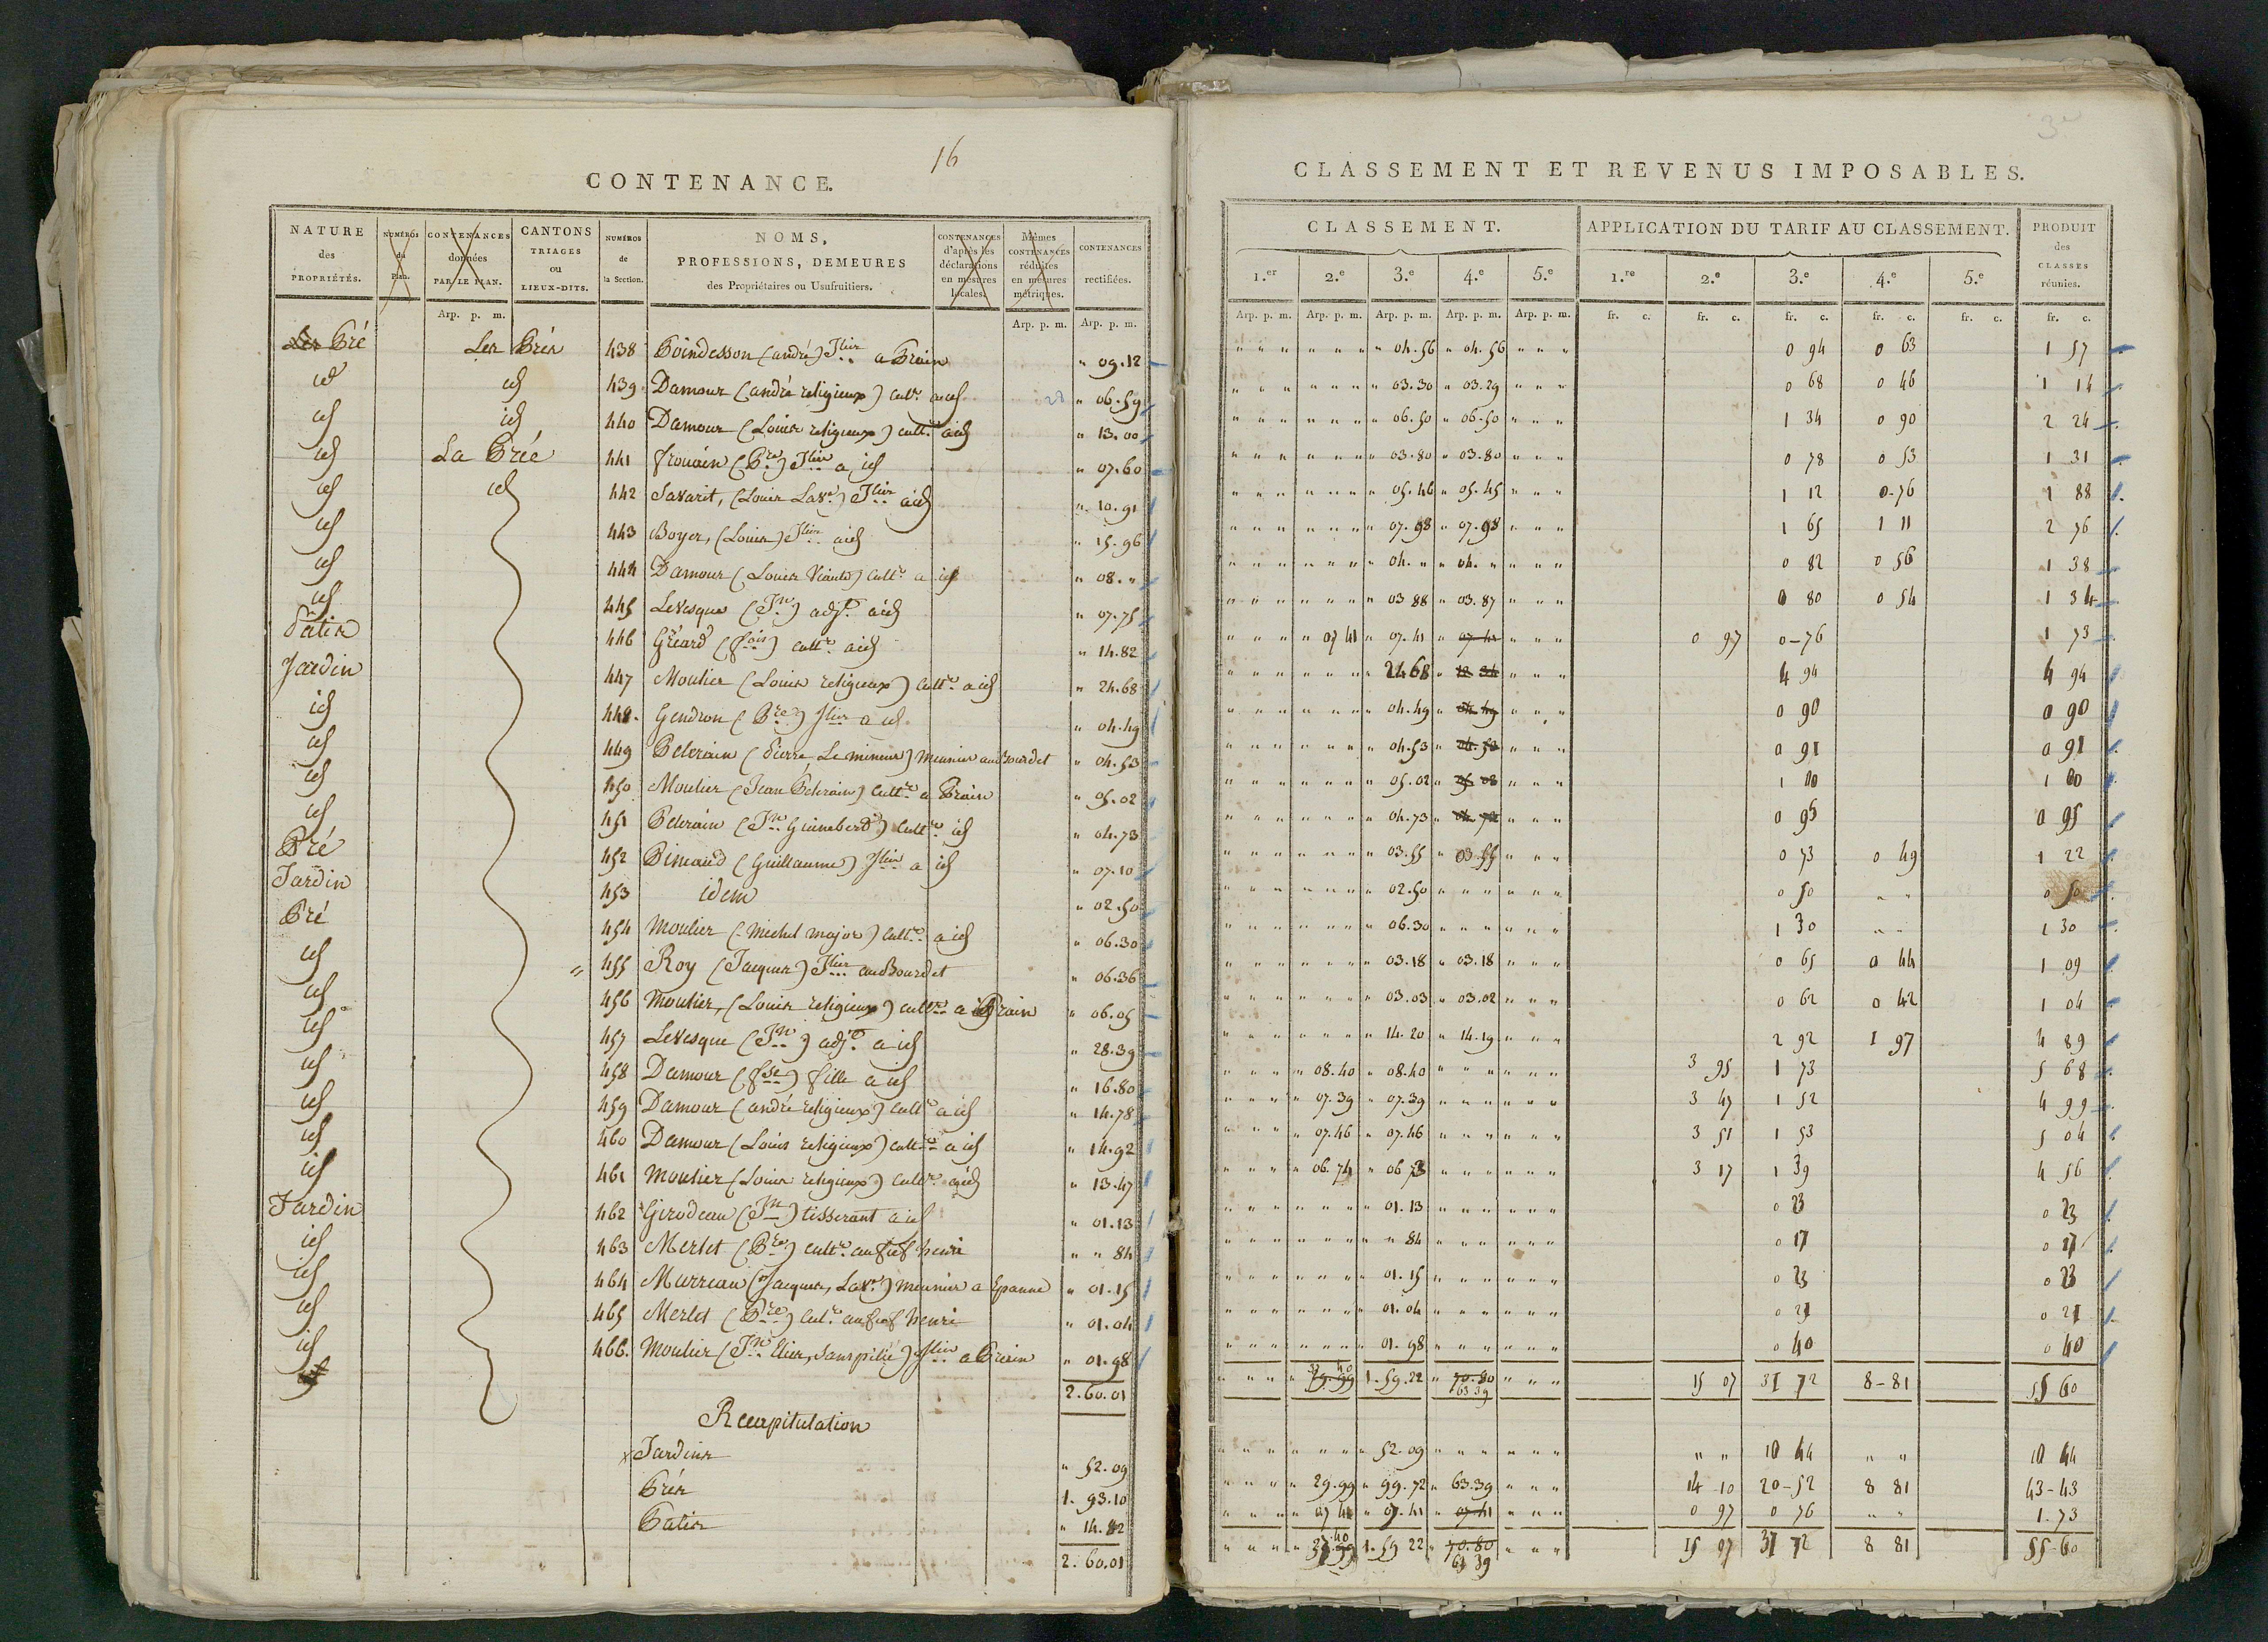 16
CONTENANCE.
NATURE des PROPRIÉTÉS. NUMÉROS du Plan. CONTENANCES données PAR LE PLAN. CANTONS TRIAGES ou LIEUX-DITS. NUMÉROS de la Section. NOMS, PROFESSIONS, DEMEURES des Propriétaires ou Usufruitiers. CONTENANCES d'après les déclarations en mesures locales. Mêmes CONTENANCES réduites en mesures métriques. CONTENANCES rectifiées.
Arp. p. m. Arp. p. m. Arp. p. m.
Les Pré Les Prés 438 Poindesson (andré) Jlier a Priain " 09.12
id id 439 Damour (andré religieux) cultr. a id 28 " 06.59
id id 440 Damour (Louis religieux) cultr. a id " 13.00
id La Prée 441 frouain (Pre) Jlier a id " 07.60
id id 442 Savarit, (Louis Lave) Jlier a id " 10.91
id 443 Boyer, (Louis) Jlier a id " 15.96
id 444 Damour (Louis Viaud) cultr. a id " 08. "
id 445 Levesque (Jn) adjt. a id " 07.75
Patis 446 Gréard (fois) cultr. a id " 14.82
Jardin 447 Moulier (Louis religieux) cultr. a id " 24.68
id 448. Gendron (Pre) Jlier a id. " 04.49
id 449 Pelerain (Pierre, Le mineur) meunier au Bourdet " 04.53
id 450 Moulier (Jean Pelrain) cultr. a Priain " 05.02
id 451 Pelerain (Jn Guimberd) cultr. id " 04.73
Pré 452 Pinaud (Guillaume) Jlier a id " 07.10
Jardin 453 idem " 02.50
Pré 454 Moulier (Michel major) cultr. a id " 06.30
id " 455 Roy (Jacques) Jlier au Bourdet " 06.36
id 456 Moulier, (Louis religieux) cultr. a Priain " 06.05
id 457 Levesque (Jn) adjt. a id " 28.39
id 458 Damour (fse) fille a id " 16.80
id 459 Damour (andré religieux) cultr. a id " 14.78
id 460 Damour (Louis religieux) cultr. a id " 14.92
id 461 Moulier (Louis religieux) cultr. a id " 13.47
Jardin 462 Girodeau (Jn) tisserant a id " 01.13
id 463 Merlet (Pre) cultr. au fief henri " " 84
id 464 Murreau (Jacques, Lave) meunier a Epanne " 01.15
id 465 Merlet (Pre) cul.r au fief henri " 01.04
id 466. Moulier (Jn Elier, Sanspitié) Jlier a Priain " 01.98
2.60.01
Recapitulation
Jardins " 52.09
Prés 1. 93.10
Patis " 14.82
2. 60.01
CLASSEMENT ET REVENUS IMPOSABLES.
CLASSEMENT. APPLICATION DU TARIF AU CLASSEMENT. PRODUIT des CLASSES réunies.
1.er 2.e 3.e 4.e 5.e 1.re 2.e 3.e 4.e 5.e
Arp. p. m. Arp. p. m. Arp. p. m. Arp. p. m. Arp. p. m. fr. c. fr. c. fr. c. fr. c. fr. c. fr. c.
" 04.56 " 04.56 0 94 0 63 1 57
" 03.30 " 03.29 0 68 0 46 1 14
" 06.50 " 06.50 1 34 0 90 2 24
" 03.80 " 03.80 0 78 0 53 1 31
" 05.46 " 05.45 1 12 0-76 1 88
" 07.98 " 07.98 1 65 1 11 2 76
" 04. " " 04. " 0 82 0 56 1 38
" 03 88 " 03.87 0 80 0 54 1 34
" 07 41 " 07.41 " 07 41 0 97 0-76 1 73
" 24 68 " 12 34 4 94 4 94
" 04.49 " 04 49 0 90 0 90
" 04.53 0 91 0 91
" 05.02 1 00 1 00
" 04.73 0 95 0 95
" 03.55 " 03.55 0 73 0 49 1 22
" 02.50 0 50 " " 0 50
" 06.30 1 30 " " 1 30
" 03.18 " 03.18 0 65 0 44 1 09
" 03.03 " 03.02 0 62 0 42 1 04
" 14.20 " 14.19 2 92 1 97 4 89
" 08.40 " 08.40 3 95 1 73 5 68
" 07.39 " 07.39 3 47 1 52 4 99
" 07.46 " 07.46 3 51 1 53 5 04
" 06.74 " 06 73 3 17 1 39 4 56
" 01.13 0 23 0 23
" " 84 0 17 0 17
" 01.15 0 23 0 23
" 01.04 0 21 0 21
" 01.98 0 40 0 40
37 40 1.59.22 70.80 63 39 15 07 31 72 8-81 55 60
" 52.09 " " 10 44 " " 10 44
" 29.99 " 99.72 " 63.39 14 10 20-52 8 81 43-43
" 07 41 " 07.41 " 07 41 0 97 0 76 " " 1.73
37.40 1.59 22 " 70.80 63 39 15 07 31 72 8 81 55-60